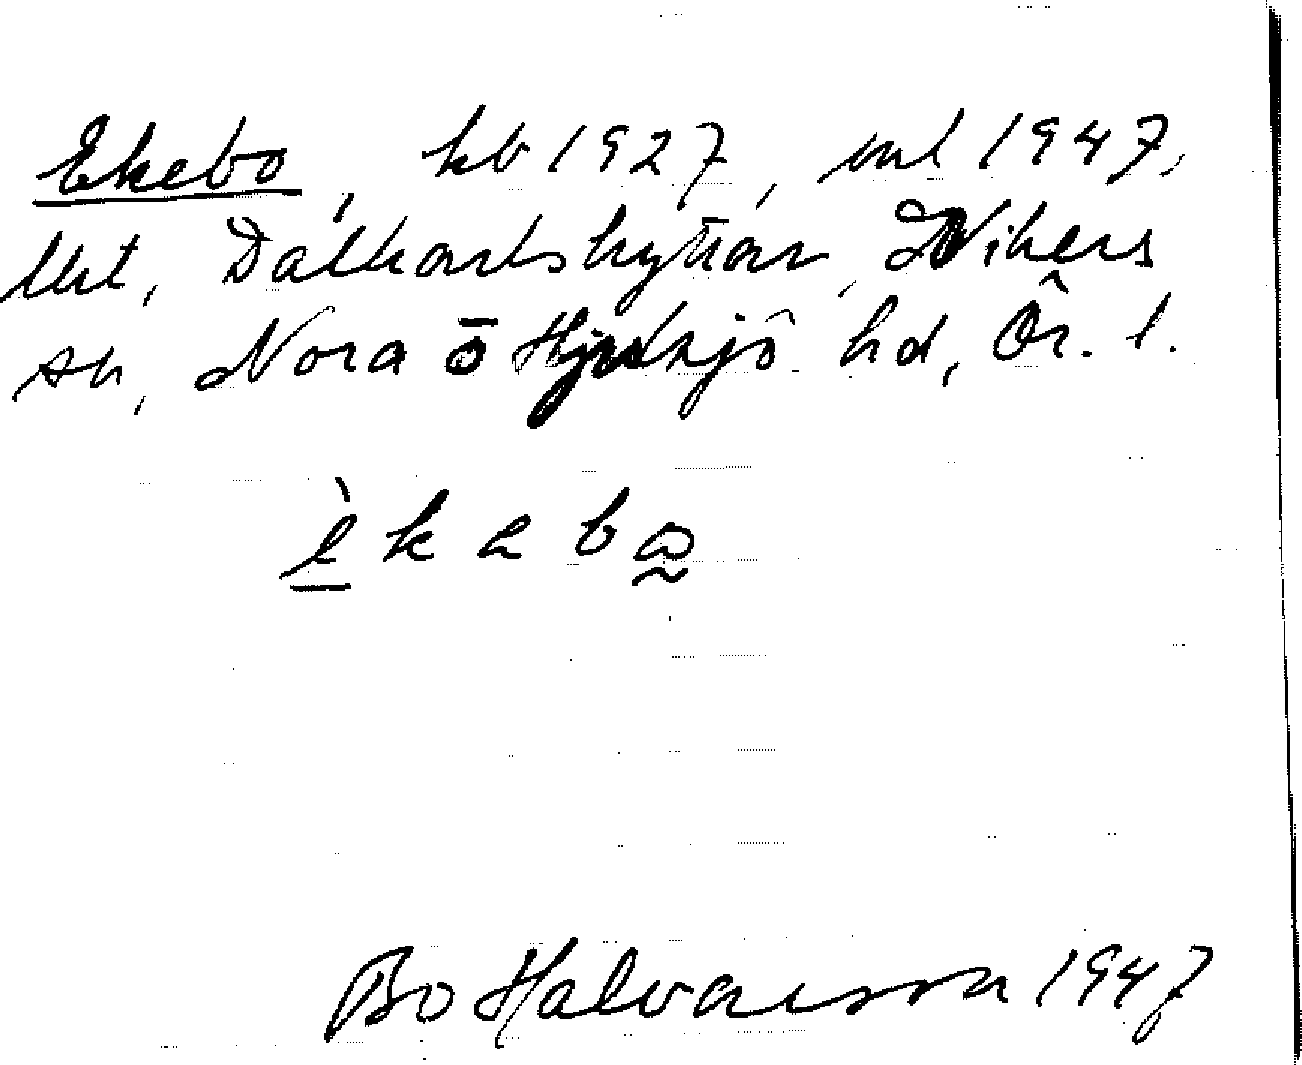 Ekebo, kb 1927, ml 1947,
lht, Dalkarlshyttan, Vikers
sn, Nora o Hjulsjö hd, Ör. l.
è k a b ω
Bo Halvarsson 1947